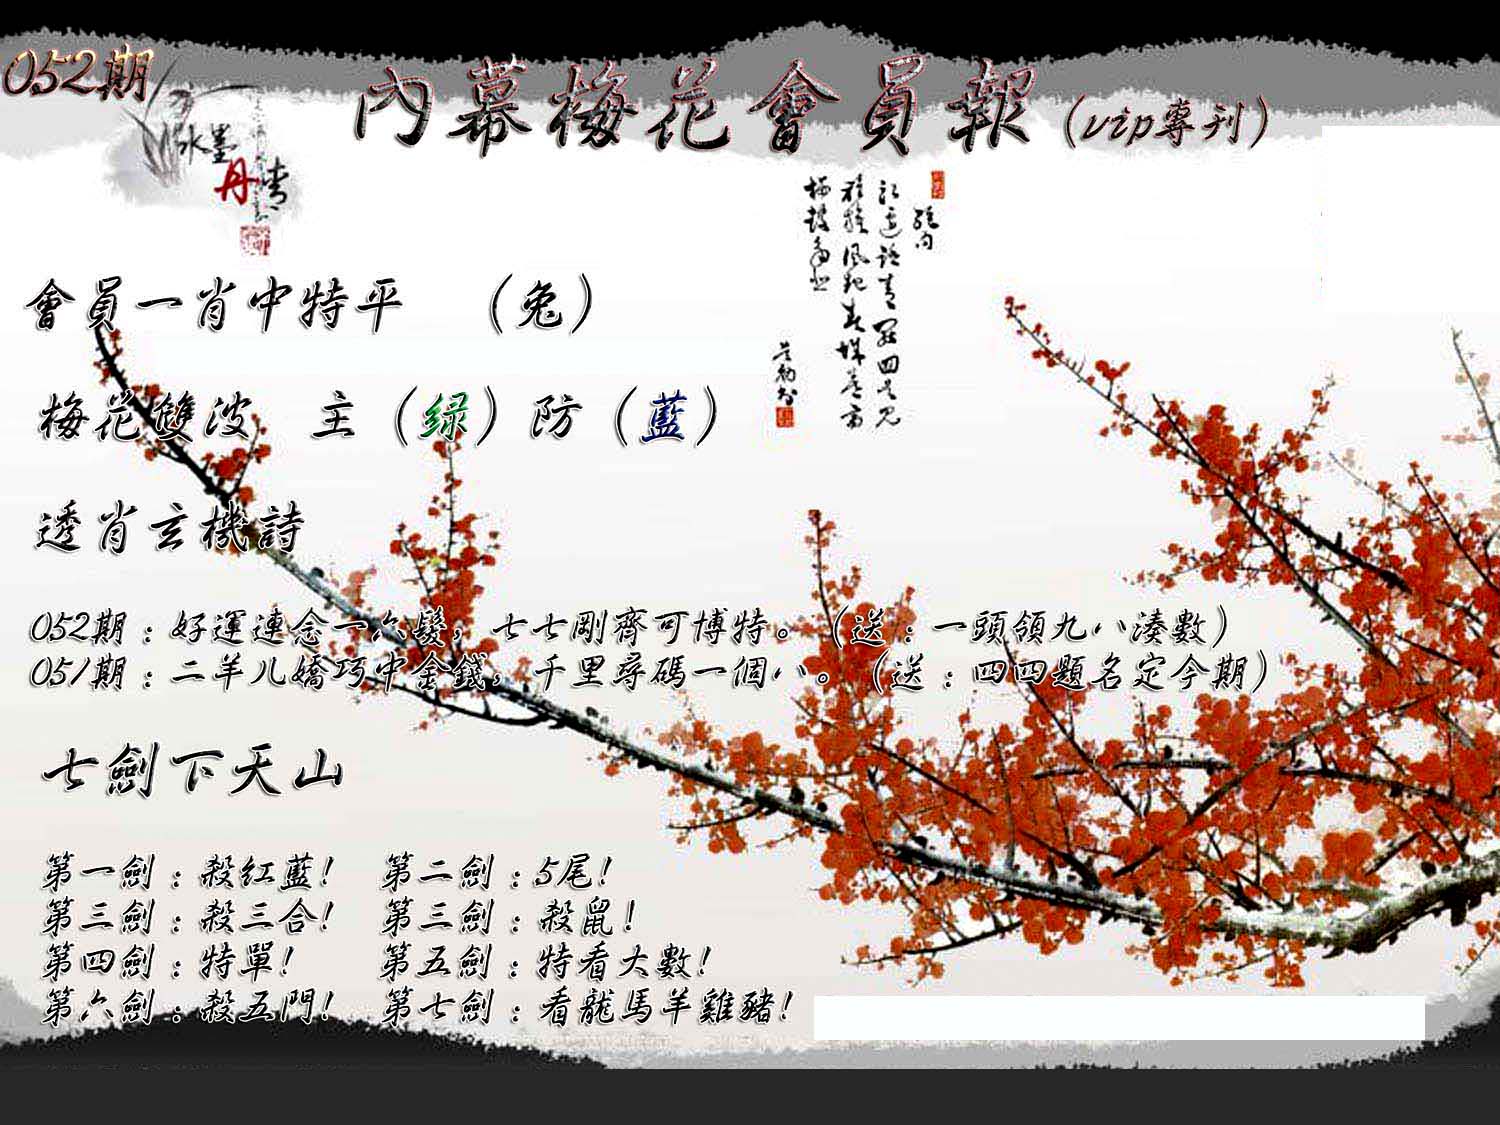 052期
內幕梅花會員報（vip專刊）
水墨
丹青
會員一肖中特平　（兔）
梅花雙波　主（绿）防（藍）
透肖玄機詩
052期：好運連念一六髮，七七剛齊可博特。（送：一頭領九八湊數）
051期：二羊儿嬌巧中金錢，千里尋碼一個八。（送：四四題名定今期）
七劍下天山
第一劍：殺红藍！　第二劍：5尾！
第三劍：殺三合！　第三劍：殺鼠！
第四劍：特單！　第五劍：特看大數！
第六劍：殺五門！　第七劍：看龍馬羊雞豬！